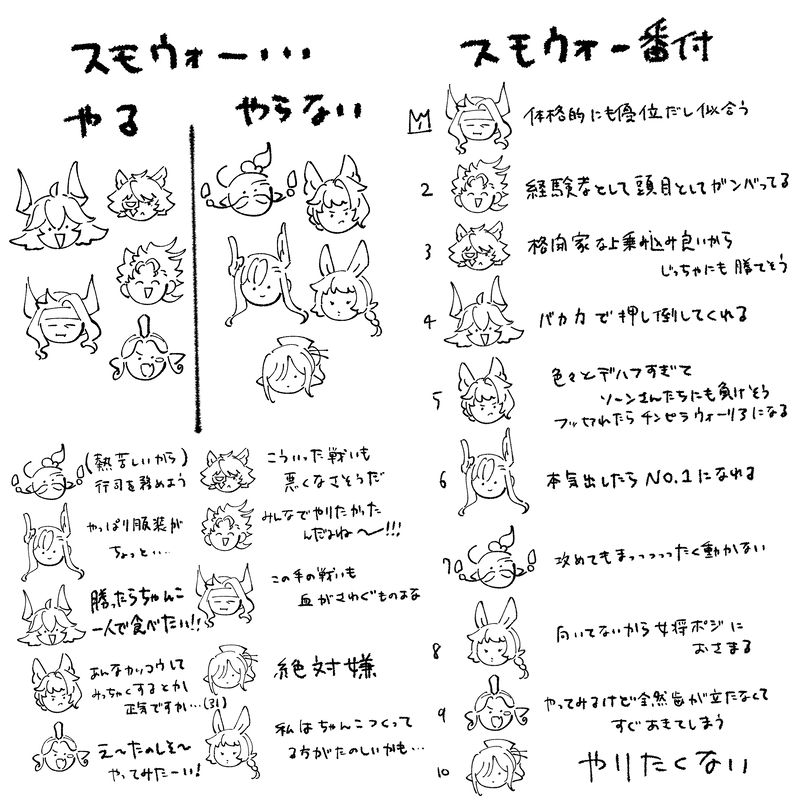 スモウォー・・・
やる
やらない
(熱苦しいから)
行司を務めよう
こういった戦いも
悪くなさそうだ
やっぱり服装が
ちょっと・・・
みんなでやりたかった
んだよね〜!!!
勝ったらちゃんこ
一人で食べたい!!
この手の戦いも
血がさわぐものよな
あんなカッコウして
みっちゃくするとか
正気ですか・・・(31)
絶対嫌
え〜たのしそ〜
やってみたーい!
私はちゃんこつくって
る方がたのしいかも・・・
スモウォー番付
体格的にも優位だし似合う
2
経験者として頭目としてガンバってる
3
格闘家な上乗り込み良いから
じっちゃにも勝てそう
4
バカ力で押し倒してくれる
5
色々とデハフすぎて
ソーンさんたちにも負けそう
フッ切れたらチンピラウォーリアになる
6
本気出したらNO.1になれる
7
攻めてもまっっっっったく動かない
8
向いてないから女将ポジに
おさまる
9
やってみるけど全然歯が立たなくて
すぐあきてしまう
10
やりたくない